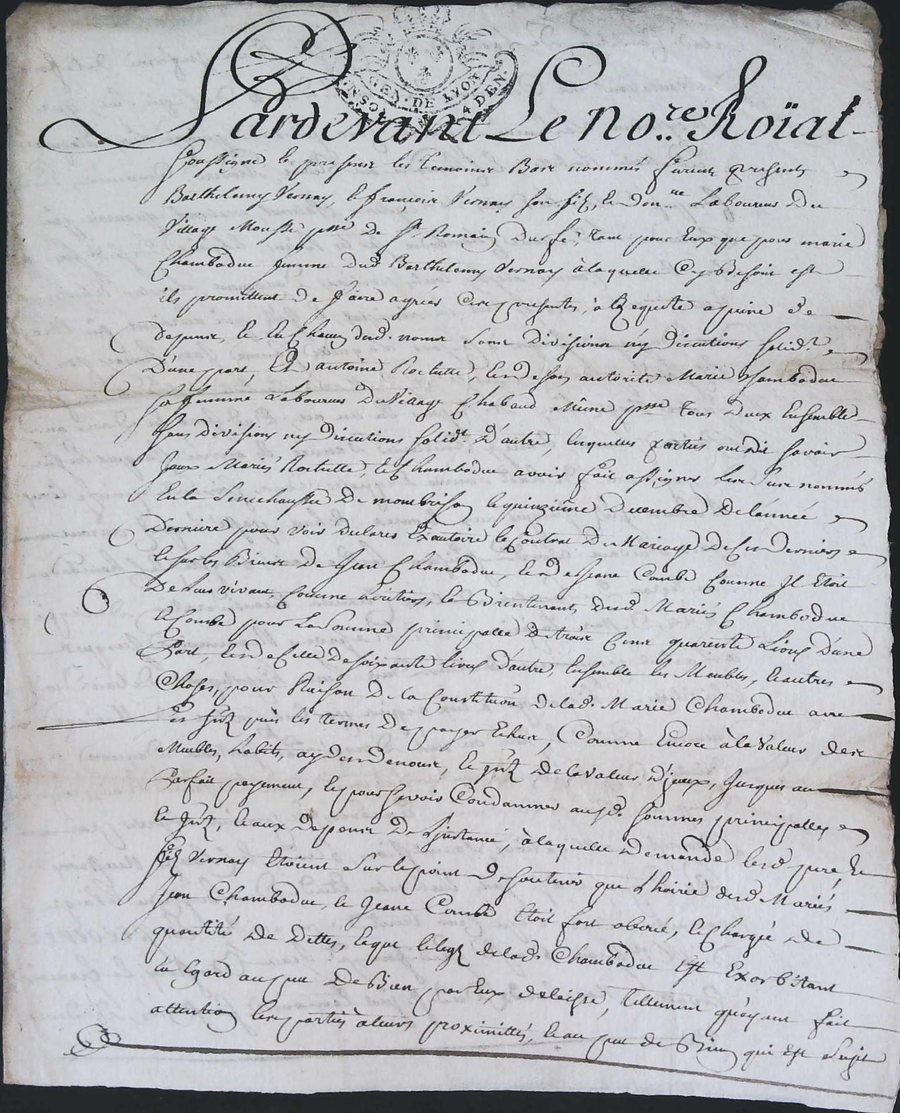 GEN. DE LYON
4 DEN.
Pardevant Le no.re Roïal
Soussigné et presens les temoins Bas nommés furent presents
Barthelemy Vernay, et françois Vernay son fils, Laboureurs du
Village Mouste psse de St. Romain Durfé, tant pour Eux que pour marie
Chambodue femme dud. Barthelemy Vernay à laquelle Cy Besoin est
ils promettent de faire agréer Ces presentes, à la Requeste a peine de
depens, et un Chacun desd. noms sans division ny discution solidt.
D'une part, Et antoine Rochette, et de son autorité Marie Chambodue
sa femme Laboureurs du Village Chabaud Même psse tous deux Ensemble
sans division ny discution solidt. D'autre, lesquelles parties ont dit savoir
Iceux Mariés Rochette et Chambodue avoir fait assigner les sus nommés
En la Senechaussée de monbrison le quinzieme Decembre de l'année
Derniere pour voir declarer Exécutoire le Contrat de Mariage de Ces derniers
et sur les Biens de Jean Chambodue, et de Jeane Combe Comme Il étoit
De leur vivant, Comme heritiers, et Bientenants desd. Mariés Chambodue
et Combe pour la somme principalle de trois Cens quarente Livres d'une
Part, et de Celle de soixante livres d'autre, Ensemble les Meubles, et autres
Choses, pour Raison de la Constitution de lad. Marie Chambodue avec
les Jnts. puis les termes de payer Echus, Comme Encore à la Valeur desd.
Meubles, habits, et Jnts. de la valeur d'iceux, Jusques au
Parfait payement, et pour se voir Condamner auxd. sommes principalles
et Jnts., et aux depens de L'instance, à laquelle demande lesd. pere Et
fils Vernay étoient sur le point de soutenir que L'hoirie desd. Mariés
Jean Chambodue, et Jeane Combe Etoit fort oberée, et Chargée de
quantité de Dettes, et que de lad. Chambodue Est Exorbitant
Eu Egard au peu de Bien par Eux delaissé, tellement qu'ayant fait
attention les parties à leurs proximittés, et au peu de Bien qui est sujet